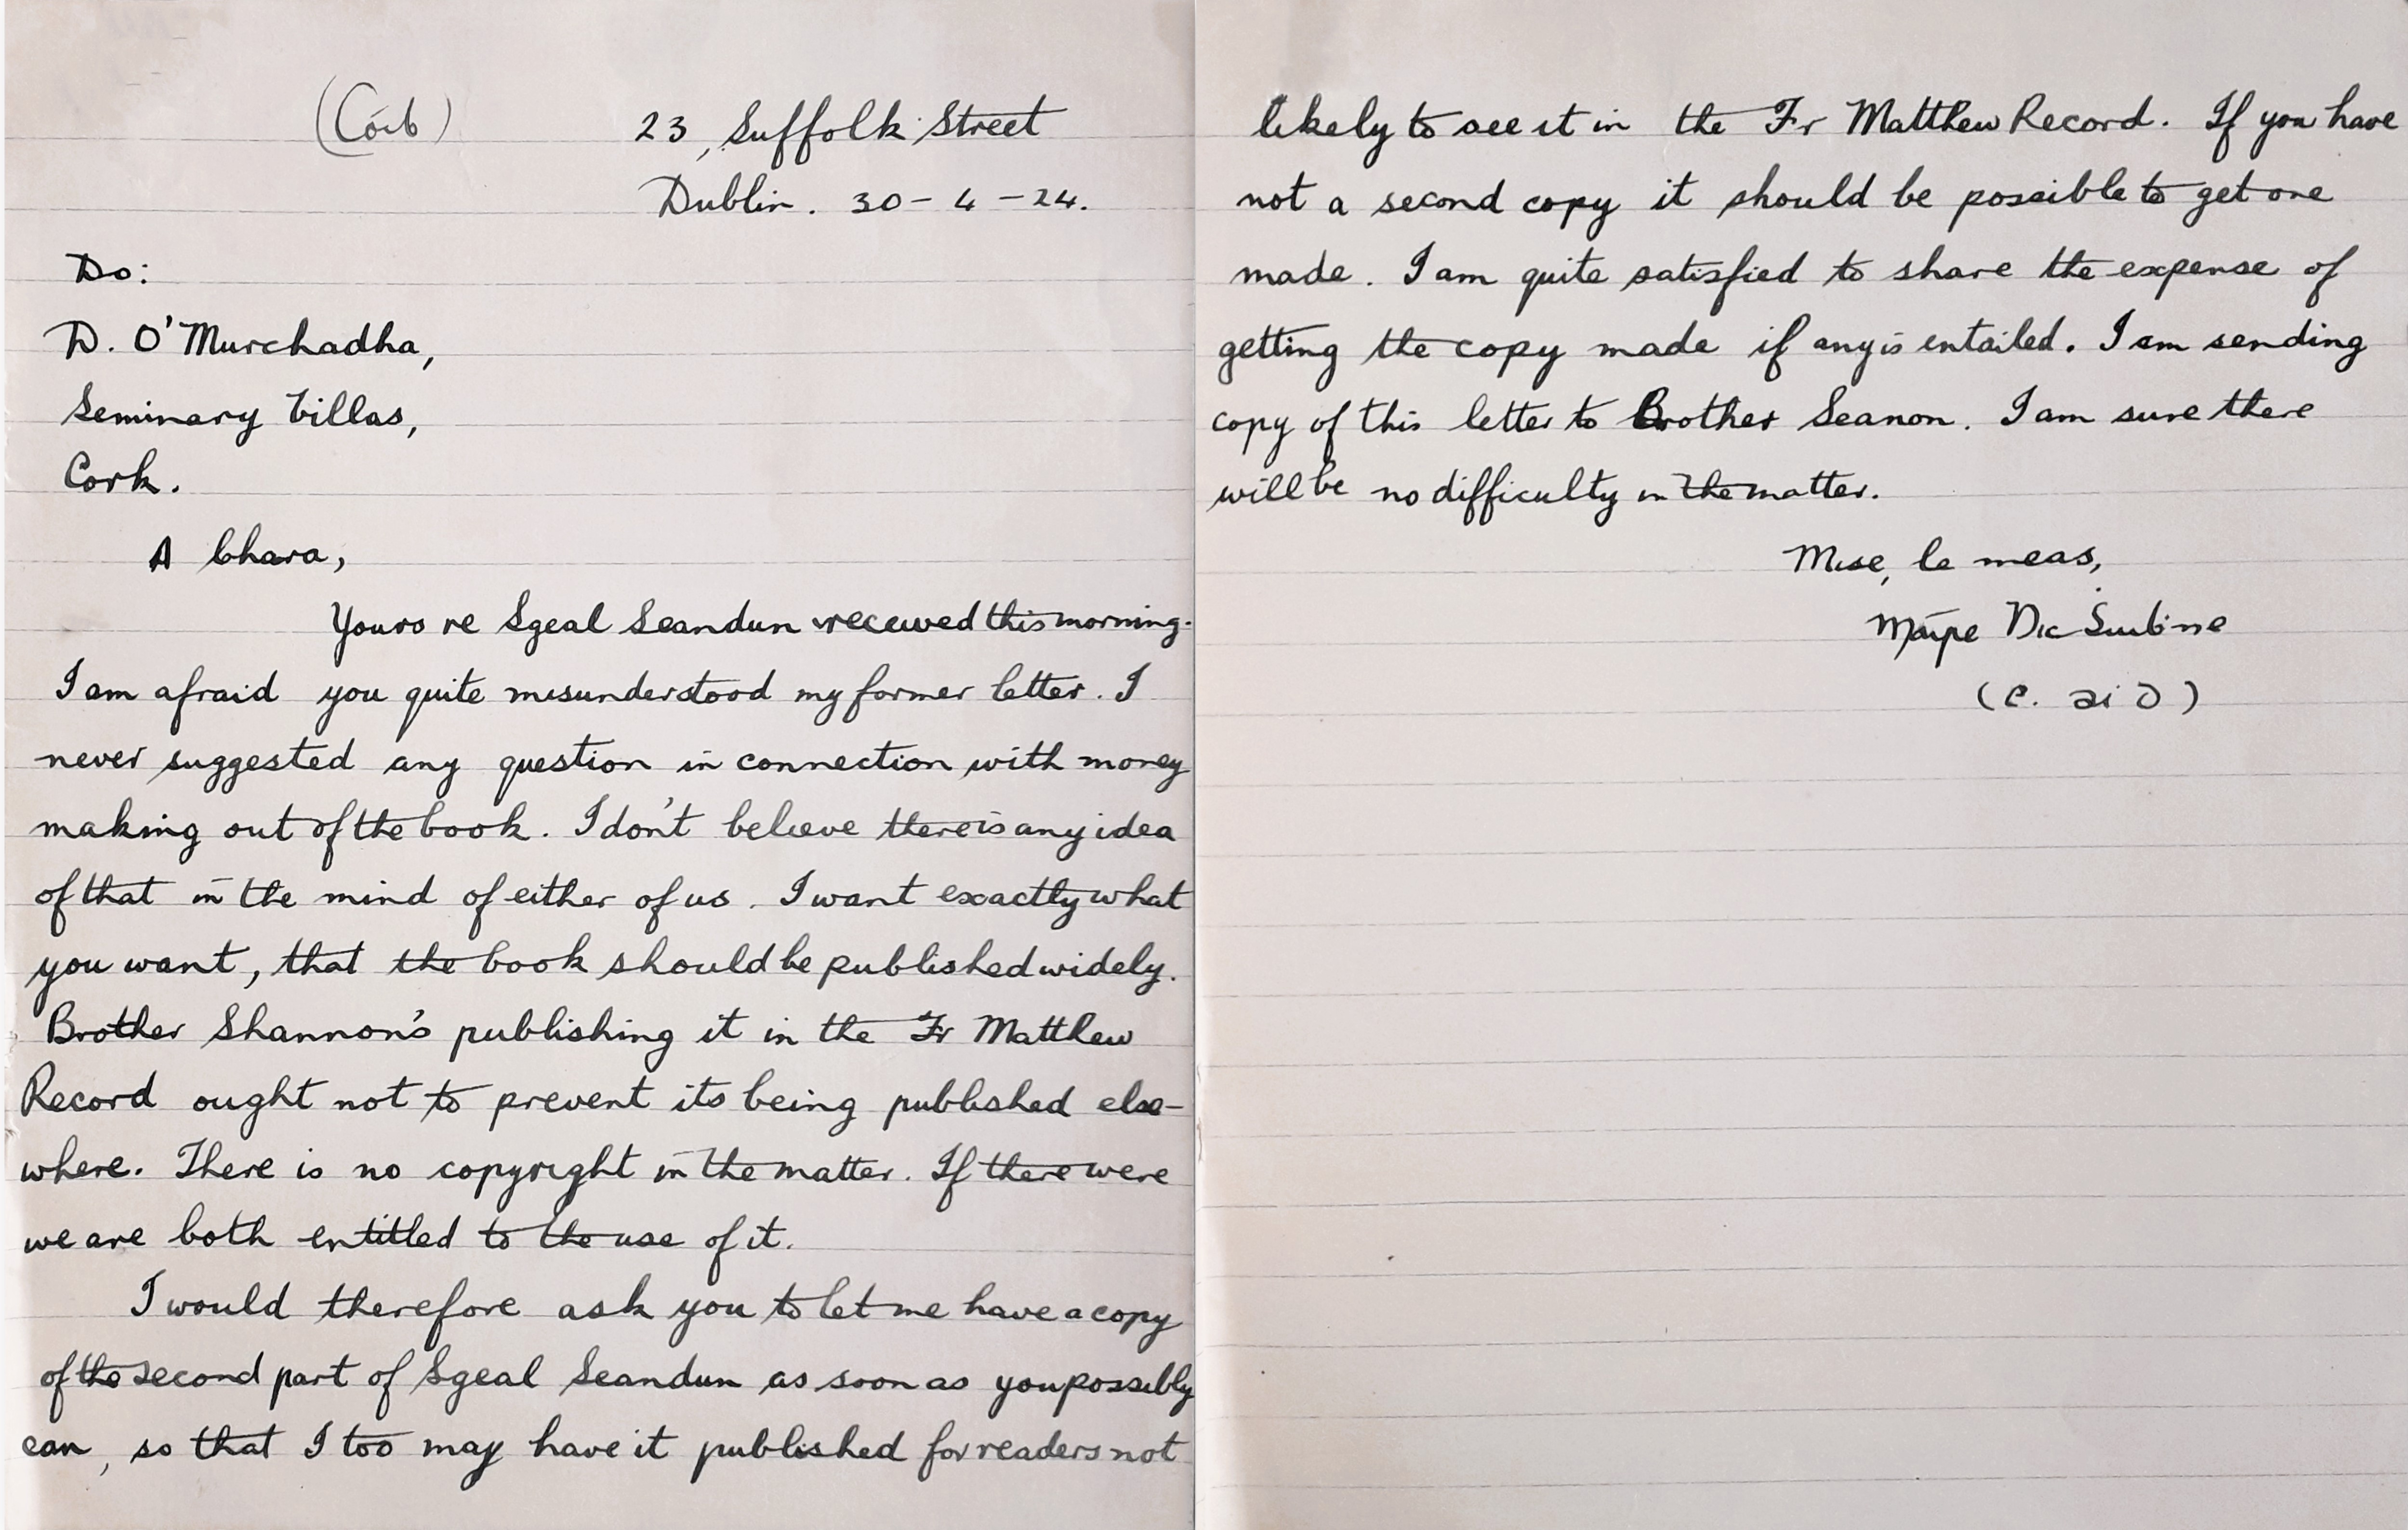 (Cóib) 23, Suffolk Street
Dublin. 30-4-24.
Do:
D. O'Murchadha,
Seminary Villas,
Cork.
A Chara,
Yours re Sgeal Seandun received this morning.
I am afraid you quite misunderstood my former letter. I
never suggested any question in connection with money
making out of the book. I don't believe there is any idea
of that in the mind of either of us. I want exactly what
you want, that the book should be published widely.
Brother Shannon's publishing it in the Fr Matthew
Record ought not to prevent its being published else-
where. There is no copyright in the matter. If there were
we are both entitled to the use of it.
I would therefore ask you to let me have a copy
of the second part of Sgeal Seandun as soon as you possibly
can, so that I too may have it published for readers not
likely to see it in the Fr Matthew Record. If you have
not a second copy it should be possible to get one
made. I am quite satisfied to share the expense of
getting the copy made if any is entailed. I am sending
copy of this letter to Brother Seanon. I am sure there
will be no difficulty in the matter.
Mise, le meas,
Máire Nic Ṡuibne